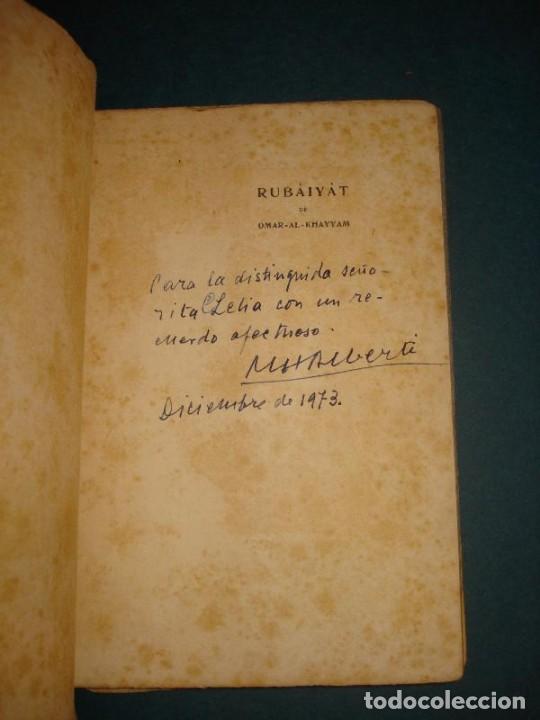 RUBÀIYÀT
DE
OMAR-AL-KHAYYAM
Para la distinguida seño-
rita Lelia con un re-
cuerdo afectuoso.
Alberti
Diciembre de 1973.
todocoleccion